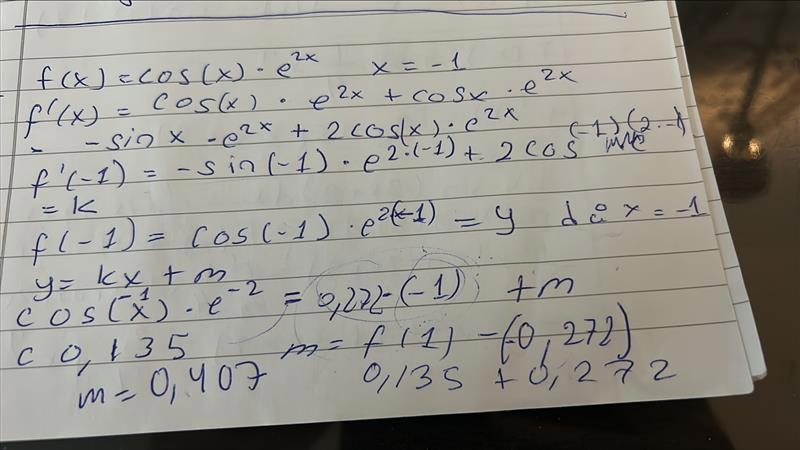 f(x) = cos(x) · e^2x   x = -1
f'(x) = cos(x) · e^2x + cosx · e^2x
- -sin x · e^2x + 2cos(x) · e^2x
f'(-1) = -sin(-1) · e^2·(-1) + 2cos (-1)(2·-1)
= k
f(-1) = cos(-1) · e^2(-1) = y   då x = -1
y = kx + m
cos(-1) · e^-2 = 0,272 · (-1) + m
c 0,135   m = f(1) - (-0,272)
m = 0,407   0,135 + 0,272